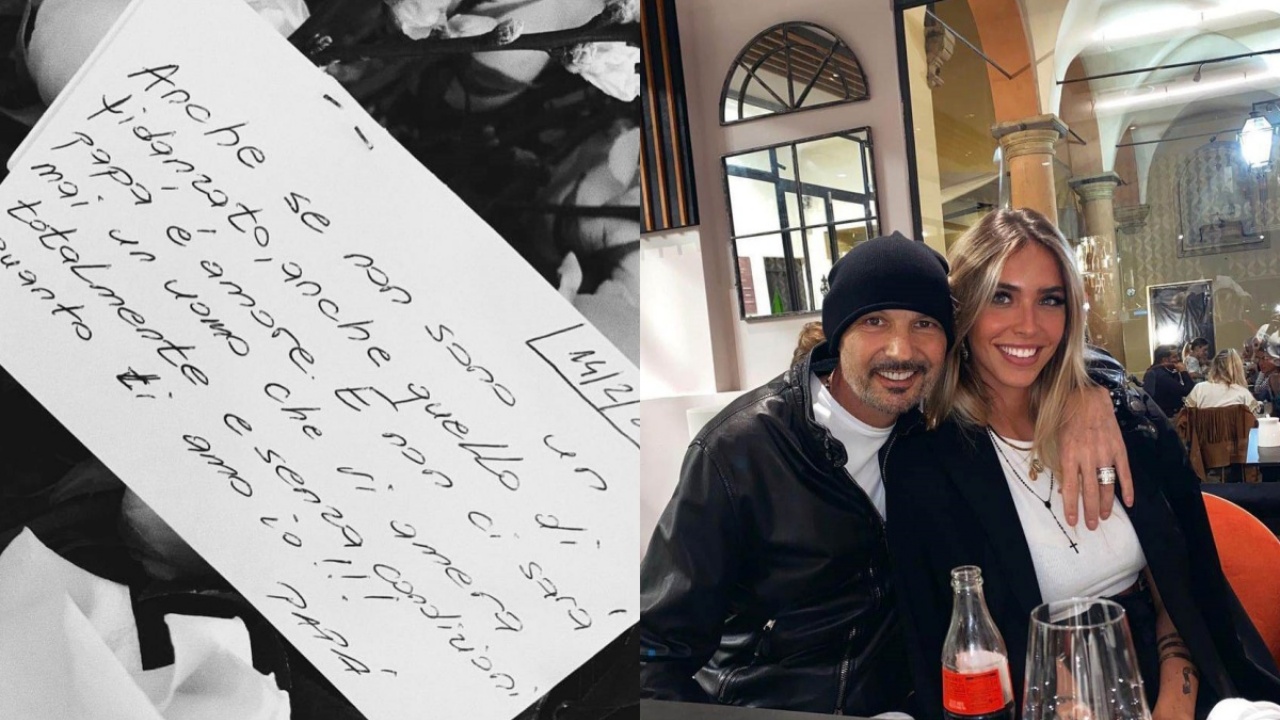 14/2/
Anche se non sono un
fidanzato, anche quello di
papà è amore. E non ci sarà
mai un uomo che ti amerà
totalmente e senza condizioni
quanto ti amo io!!
PAPÀ